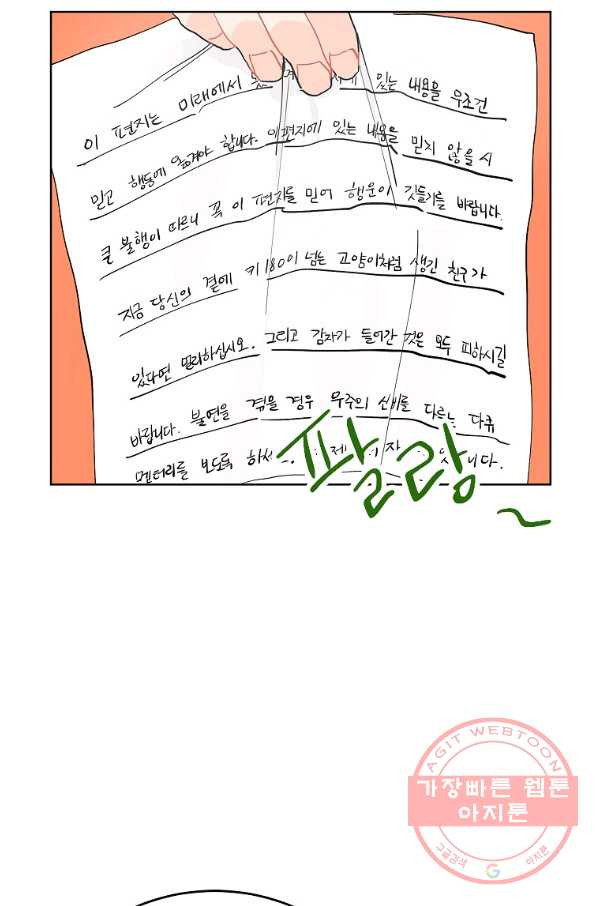 이 편지는 미래에서 있는 내용을 무조건
믿고 행동에 옮겨야 합니다. 이 편지에 있는 내용을 믿지 않을 시
큰 불행이 따르니 꼭 이 편지를 믿어 행운이 깃들기를 바랍니다.
지금 당신의 곁에 키 180이 넘는 고양이처럼 생긴 친구가
있다면 멀리하십시오. 그리고 감자가 들어간 것은 모두 피하시길
바랍니다. 불면을 겪을 경우 우주의 신비를 다루는 다큐
멘터리를 보도록 하세
팔랑~
AGIT WEBTOON
가장빠른 웹툰
아지툰
구글검색 G 아지툰